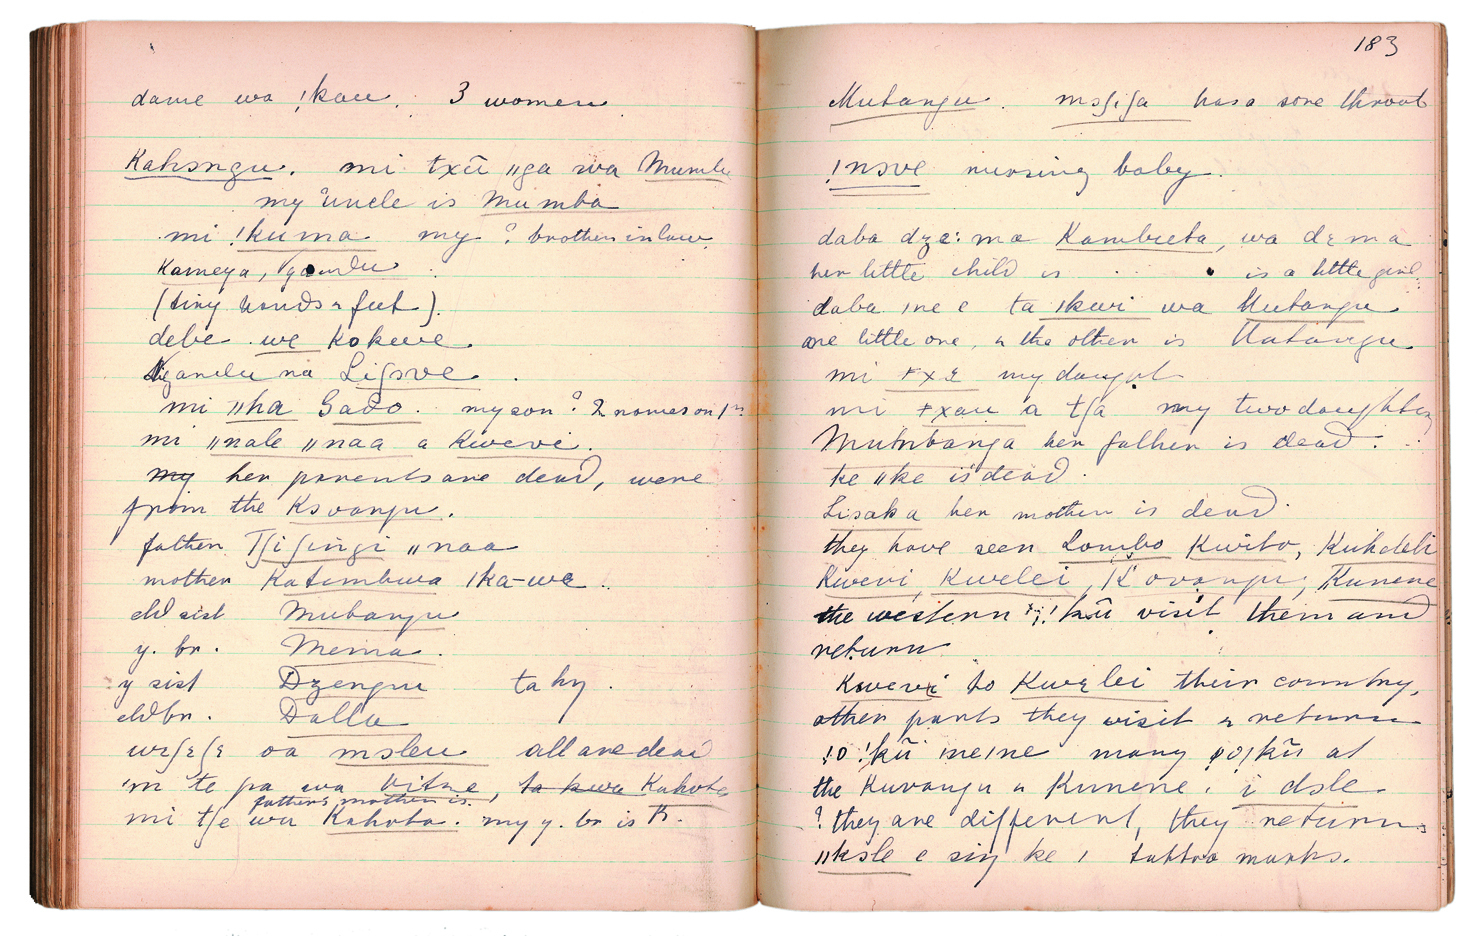 dame wa !kau. 3 women
Kahɔngu. mi txū ǁga wa Mumba
my ? uncle is Mumba
mi !kuma my ? brother in law
Kameya,
(tiny hands & feet).
debe we Kokwe.
na Liʃɔve.
mi ǁha Sado. my son ? 2 names on 1st
mi ǁnale ǁnaa a Kwevi.
my her parents are dead, were
from the Kɔvangu.
father Tʃiʃingi ǁnaa
mother Katimbwa ǀka-we.
eld sist Mubangu
y. br. Mema.
y sist Dzengu ta hy.
eld br. Dalla
weʃɛʃɛ oa mɔleu all are dead
m te pa wa Vitne, ta kwa Kahota
fathers mother is
mi tʃe wa Kahota. my y. br is K.
183
Mubangu. mɔʃiʃa has a sore throat
!nɔve nursing baby.
daba dzɛ: ma Kambueta, wa dɛ ma
her little child is is a little girl.
daba ǀne e ta ǀkwi wa Mubangu
one little one, & the other is
mi ǂxɛ my daught
mi ǂxau a tʃa my two daughters
her father is dead.
ke ǁke is dead.
Lisaka her mother is dead.
they have seen Lombo Kwito, Kuhdeli
Kwevi, Kwelei, Kovangu, Kunene
the western !kũ visit them and
return
Kwevi to Kwɛlei their country,
other parts they visit & return
!o !kũ ǀneǀne many !kũ at
the Kuvangu & Kunene. i dɔle.
? they are different, they return
ǁkɔle e siŋ ke ǀ tattoo marks.